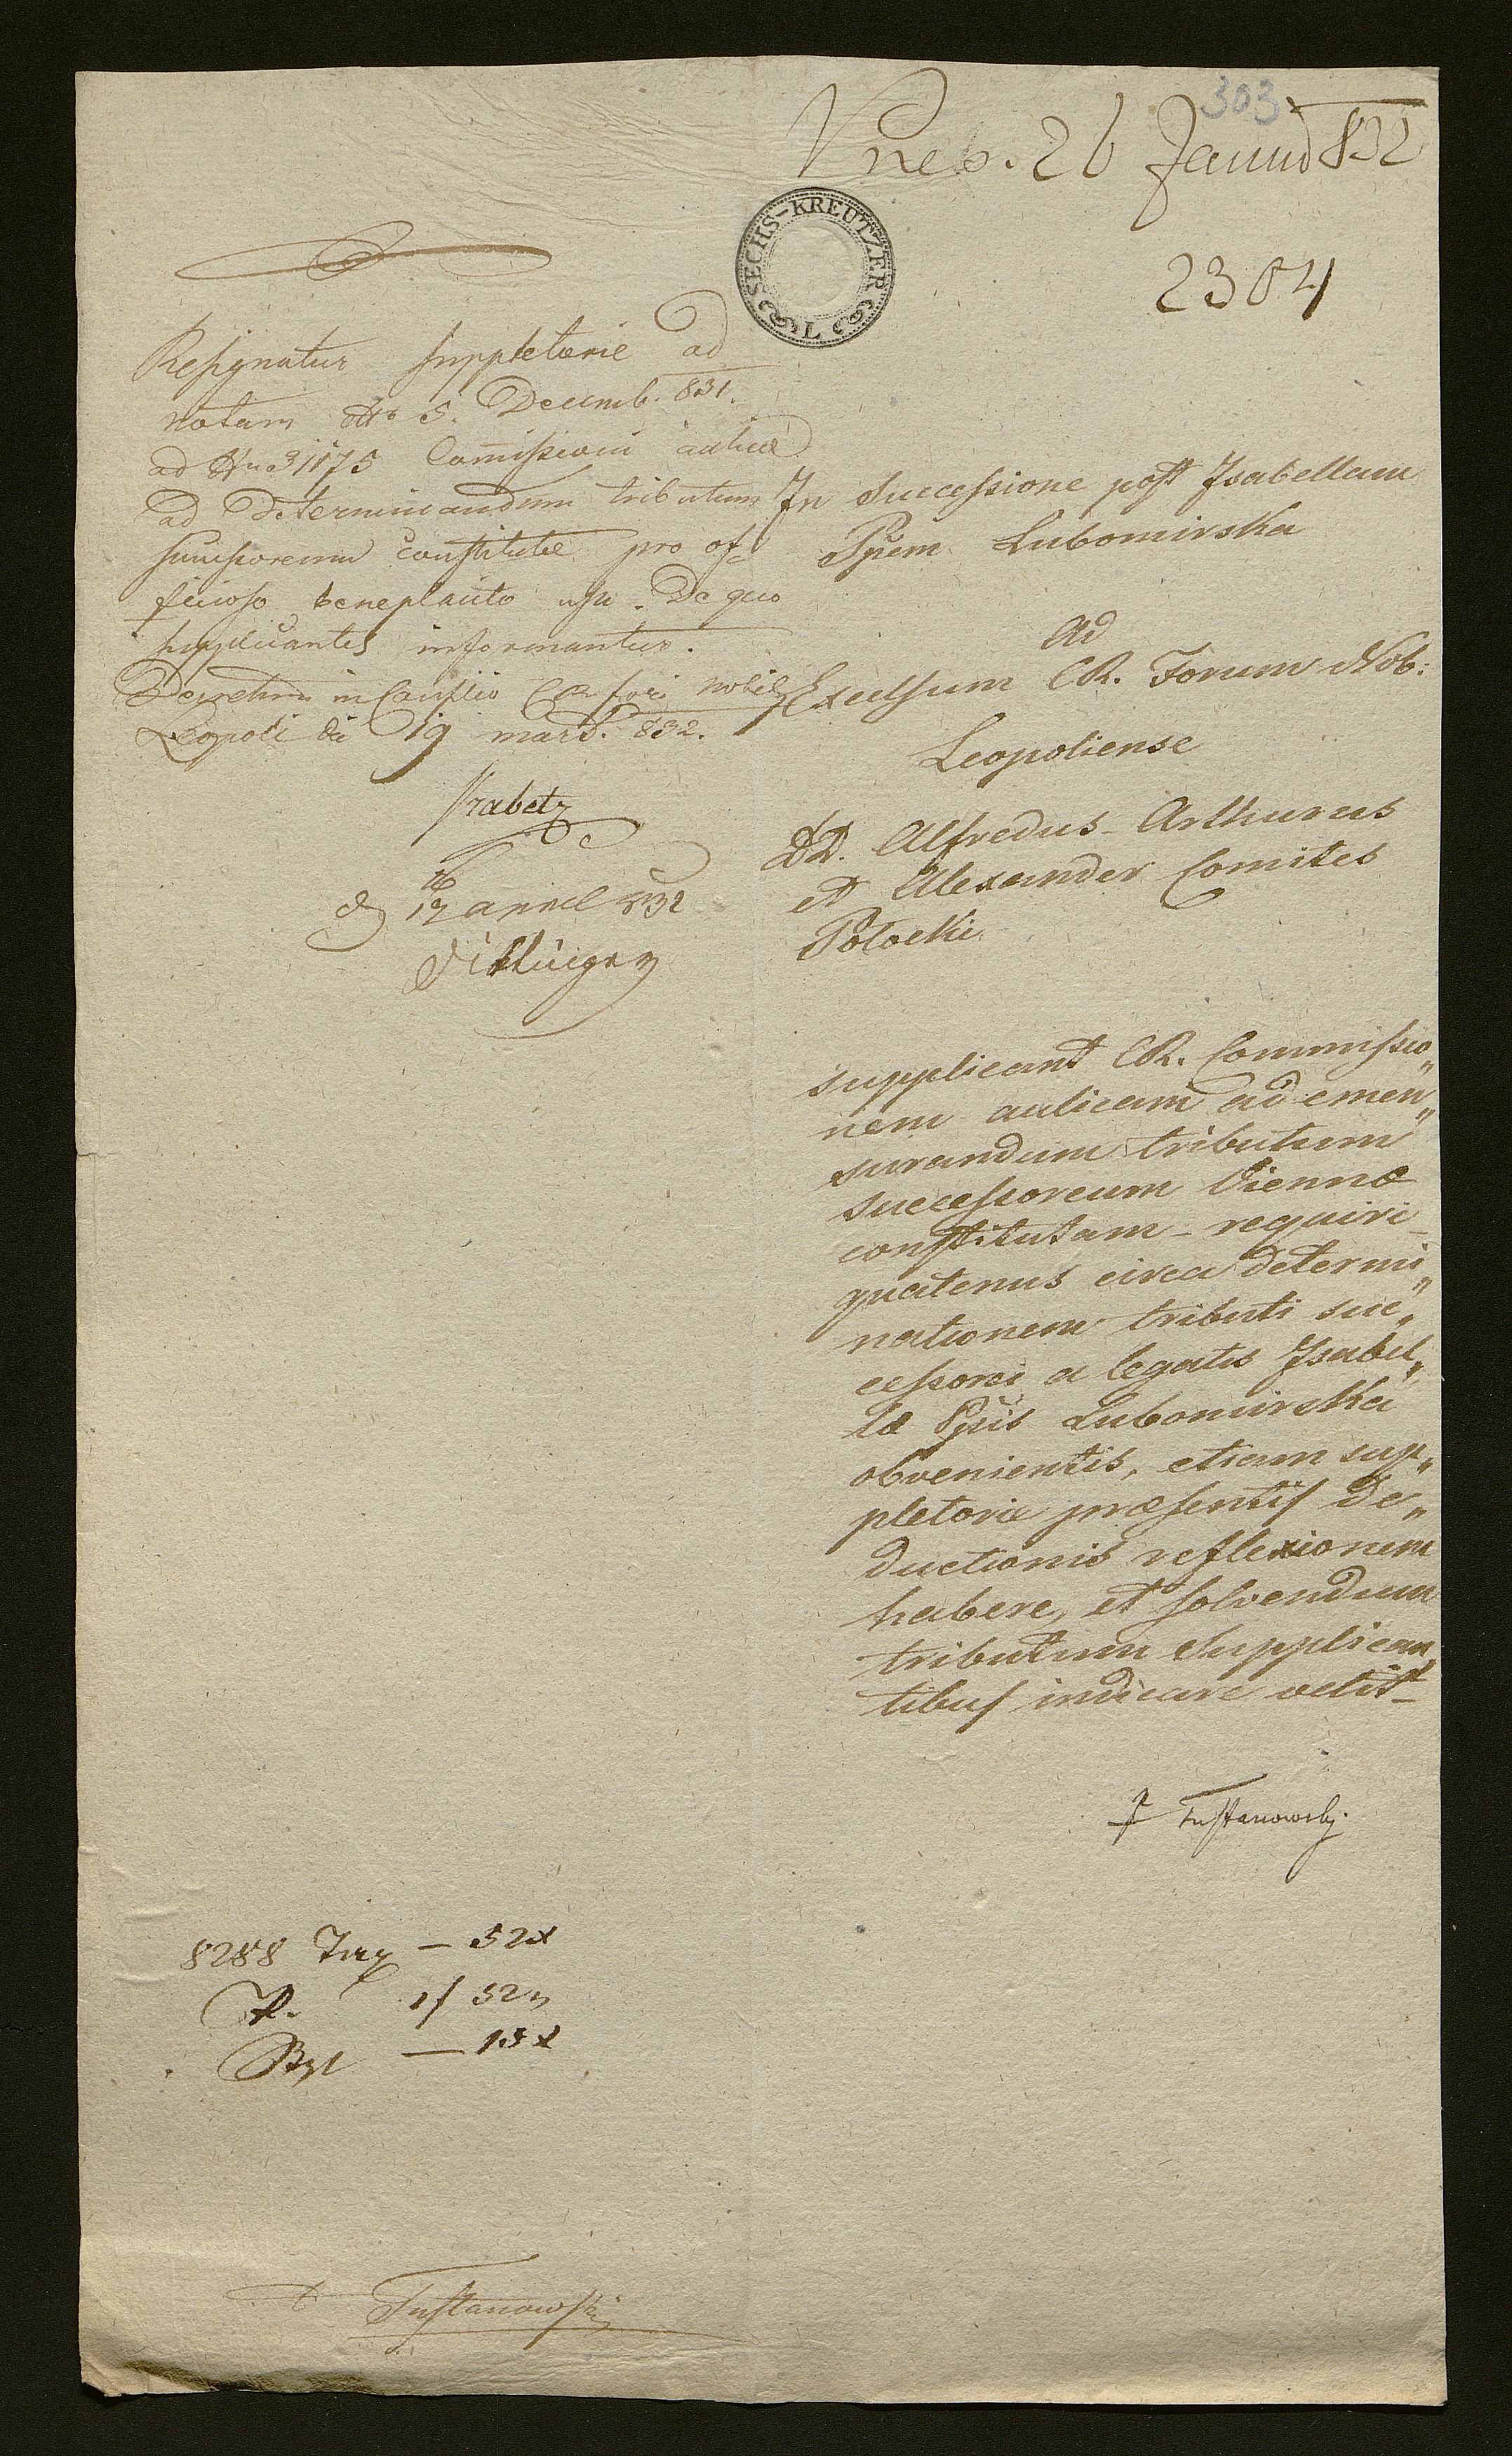 303
Pres. 26 Januar 832
SECHS-KREUTZER
L
2304
Resignatur suppletorie ad
notam dtto 5. Decemb. 831.
ad Nu 31175 Comissioni aulicæ
ad determinandum tributum
successoreum constitutæ pro of„
ficioso beneplacito usu. De quo
supplicantes informantur.
Decretum in Consilio CR fori nobil
Leopoli di 19 mart. 832.
16
17 april 832
In successione post Isabellam
Ppem Lubomirska
Ad
Excelsum CR. Forum Nob:
Leopoliense
DD. Alfredus Arthurus
et Alexander Comites
Potockie
supplicant CR. Commissio„
nem aulicam ad emen„
surandum tributum
successoreum Viennæ
constitutam – requiri
quatenus circa determi„
nationem tributi suc„
cessorei a legatis Isabel„
læ Ppis Lubomirska
obvenientis, etiam sup„
pletoriæ præsentis de„
ductionis reflexionem
habere, et solvendum
tributum supplican„
tibus indicare velit –
Tustanowski
8288 Trax – 52x
R. 1f 52x
– 15x
Tustanowski